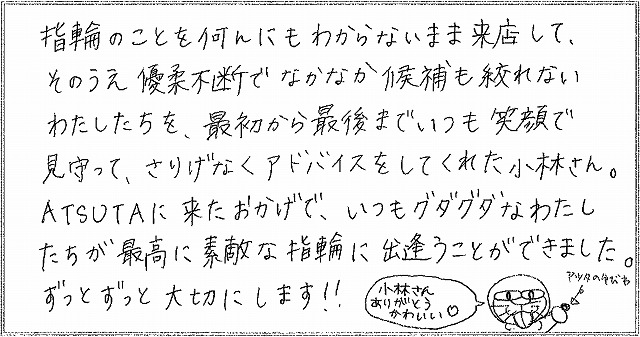 指輪のことを何んにもわからないまま来店して、
そのうえ優柔不断でなかなか候補も絞れない
わたしたちを、最初から最後までいつも笑顔で
見守って、さりげなくアドバイスをしてくれた小林さん。
ATSUTAに来たおかげで、いつもグダグダなわたし
たちが最高に素敵な指輪に出逢うことができました。
ずっとずっと大切にします!!
小林さん
ありがとう
かわいい♡
アツタのゆびわ